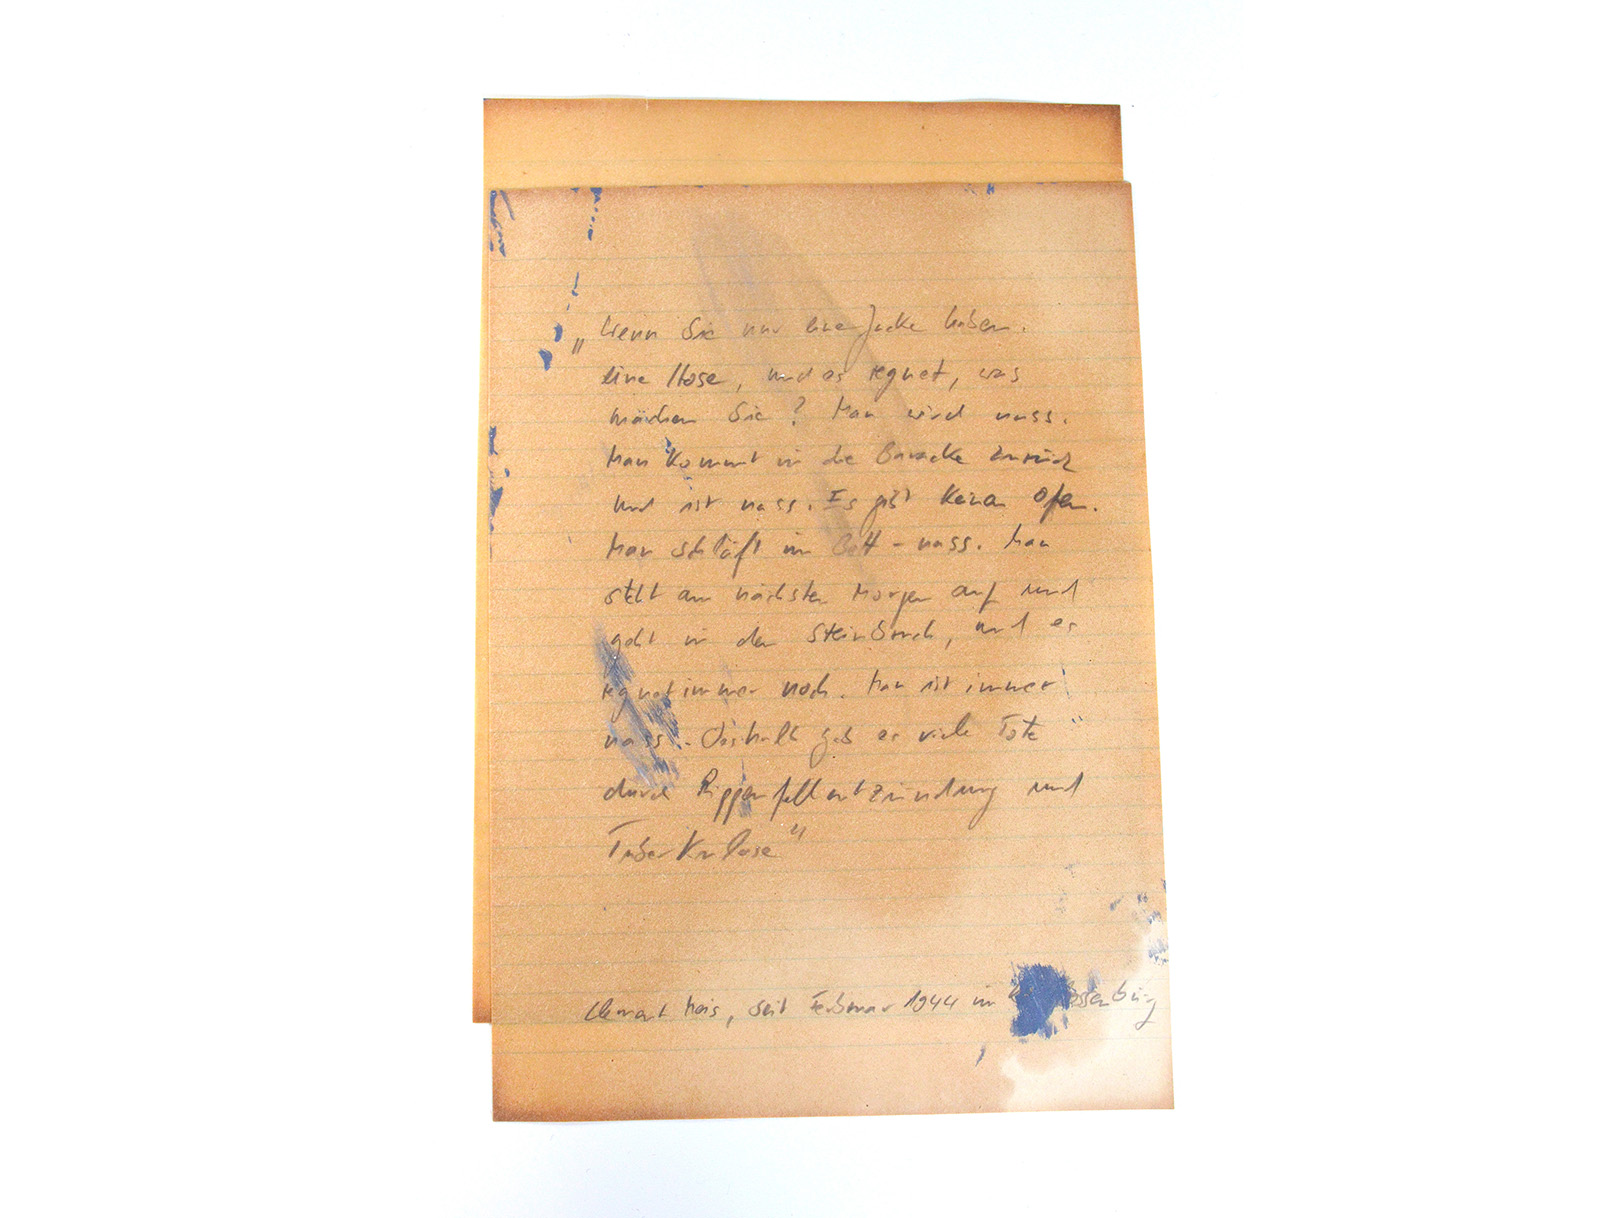 „Wenn Sie nur eine Jacke haben.
eine Hose, und es regnet, was
machen Sie? Man wird nass.
Man kommt in die Baracke zurück
und ist nass. Es gibt keinen Ofen.
Man schläft im Bett - nass. Man
steht am nächsten Morgen auf und
geht in den Steinbruch, und es
regnet immer noch. Man ist immer
nass. Deshalb gab es viele Tote
durch Rippenfellentzündung und
Tuberkulose"
seit Februar 1944 im